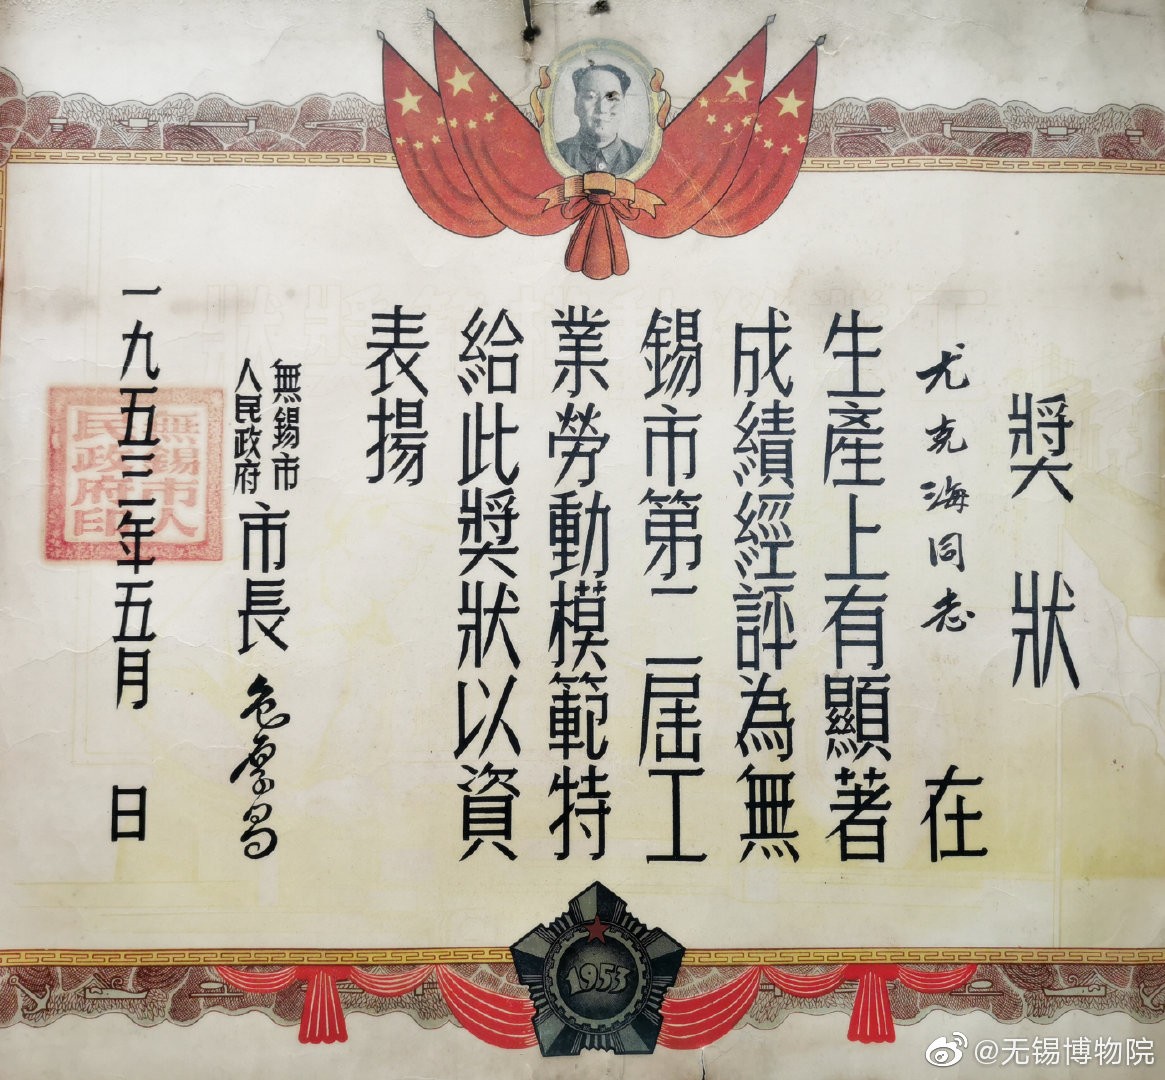 獎狀
尤克海同志 在
生產上有顯著
成績經評為無
錫市第二屆工
業勞動模範特
給此獎狀以資
表揚
無錫市
人民政府
市長 包厚昌
一九五三年五月 日
無錫市人
民政府印
1953
@无锡博物院